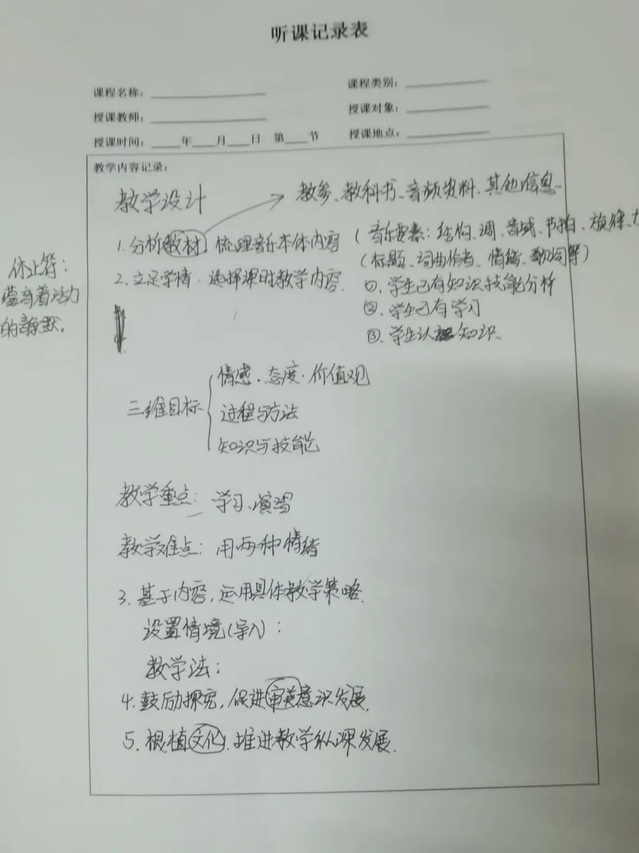 听课记录表
课程名称：
课程类别：
授课教师：
授课对象：
授课时间： 年 月 日 第 节
授课地点：
教学内容记录：
教学设计
教参、教科书、音频资料、其他信息
1.分析教材，梳理音乐本体内容
(音乐要素：结构、调、音域、节拍、旋律、
(标题、词曲作者、情绪、歌词等)
2.立足学情，选择课时教学内容
①.学生已有知识技能分析
②.学生已有学习
③.学生认知识
休止符：
蕴含着活力
的静默.
三维目标
情感.态度.价值观
过程与方法
知识与技能
教学重点：学习、演唱
教学难点：用两种情绪
3.基于内容,运用具体教学策略.
设置情境(导入)：
教学法：
4.鼓励探究,促进审美意识发展.
5.根植文化.推进教学纵深发展.